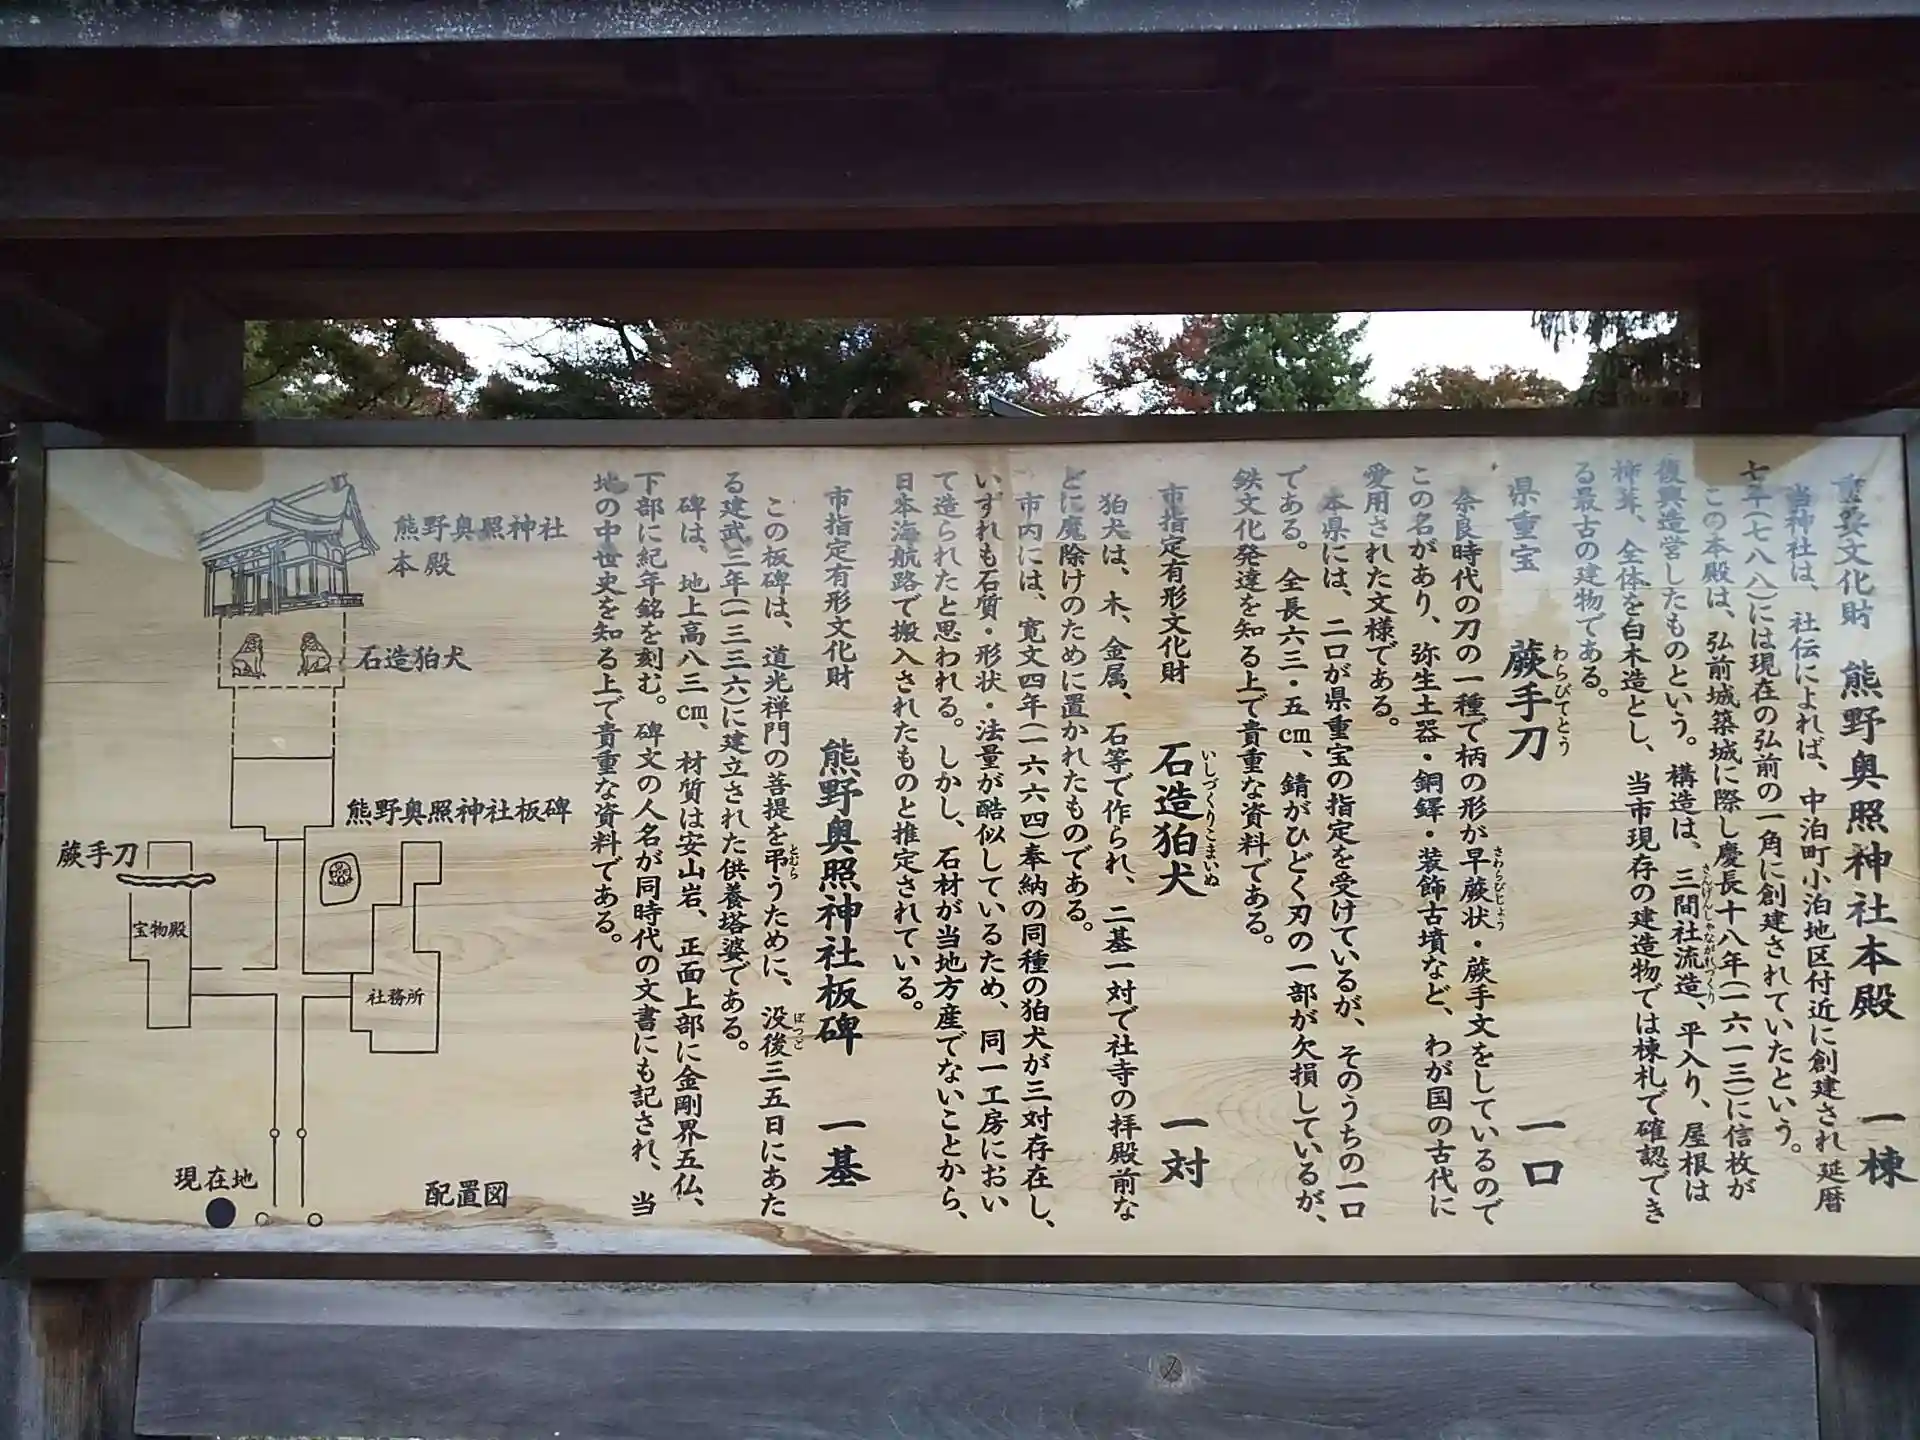 重要文化財　熊野奥照神社本殿　一棟
当神社は、社伝によれば、中泊町小泊地区付近に創建され延暦
七年(七八八)には現在の弘前の一角に創建されていたという。
この本殿は、弘前城築城に際し慶長十八年(一六一三)に信枚が
復興造営したものという。構造は、三間社流造、平入り、屋根は
さんげんしゃながれづくり
杮葺、全体を白木造とし、当市現存の建造物では棟札で確認でき
る最古の建物である。
わらびてとう
県重宝　蕨手刀　一口
奈良時代の刀の一種で柄の形が早蕨状・蕨手文をしているので
さわらびじょう
この名があり、弥生土器・銅鐸・装飾古墳など、わが国の古代に
愛用された文様である。
本県には、二口が県重宝の指定を受けているが、そのうちの一口
である。全長六三・五㎝、錆がひどく刃の一部が欠損しているが、
鉄文化発達を知る上で貴重な資料である。
いしづくりこまいぬ
市指定有形文化財　石造狛犬　一対
狛犬は、木、金属、石等で作られ、二基一対で社寺の拝殿前な
どに魔除けのために置かれたものである。
市内には、寛文四年(一六六四)奉納の同種の狛犬が三対存在し、
いずれも石質・形状・法量が酷似しているため、同一工房におい
て造られたと思われる。しかし、石材が当地方産でないことから、
日本海航路で搬入されたものと推定されている。
市指定有形文化財　熊野奥照神社板碑　一基
この板碑は、道光禅門の菩提を弔うために、没後三五日にあた
とむら
ぼつご
る建武三年(一三三六)に建立された供養塔婆である。
碑は、地上高八三㎝、材質は安山岩、正面上部に金剛界五仏、
下部に紀年銘を刻む。碑文の人名が同時代の文書にも記され、当
地の中世史を知る上で貴重な資料である。
熊野奥照神社
本殿
石造狛犬
熊野奥照神社板碑
蕨手刀
宝物殿
社務所
現在地
配置図